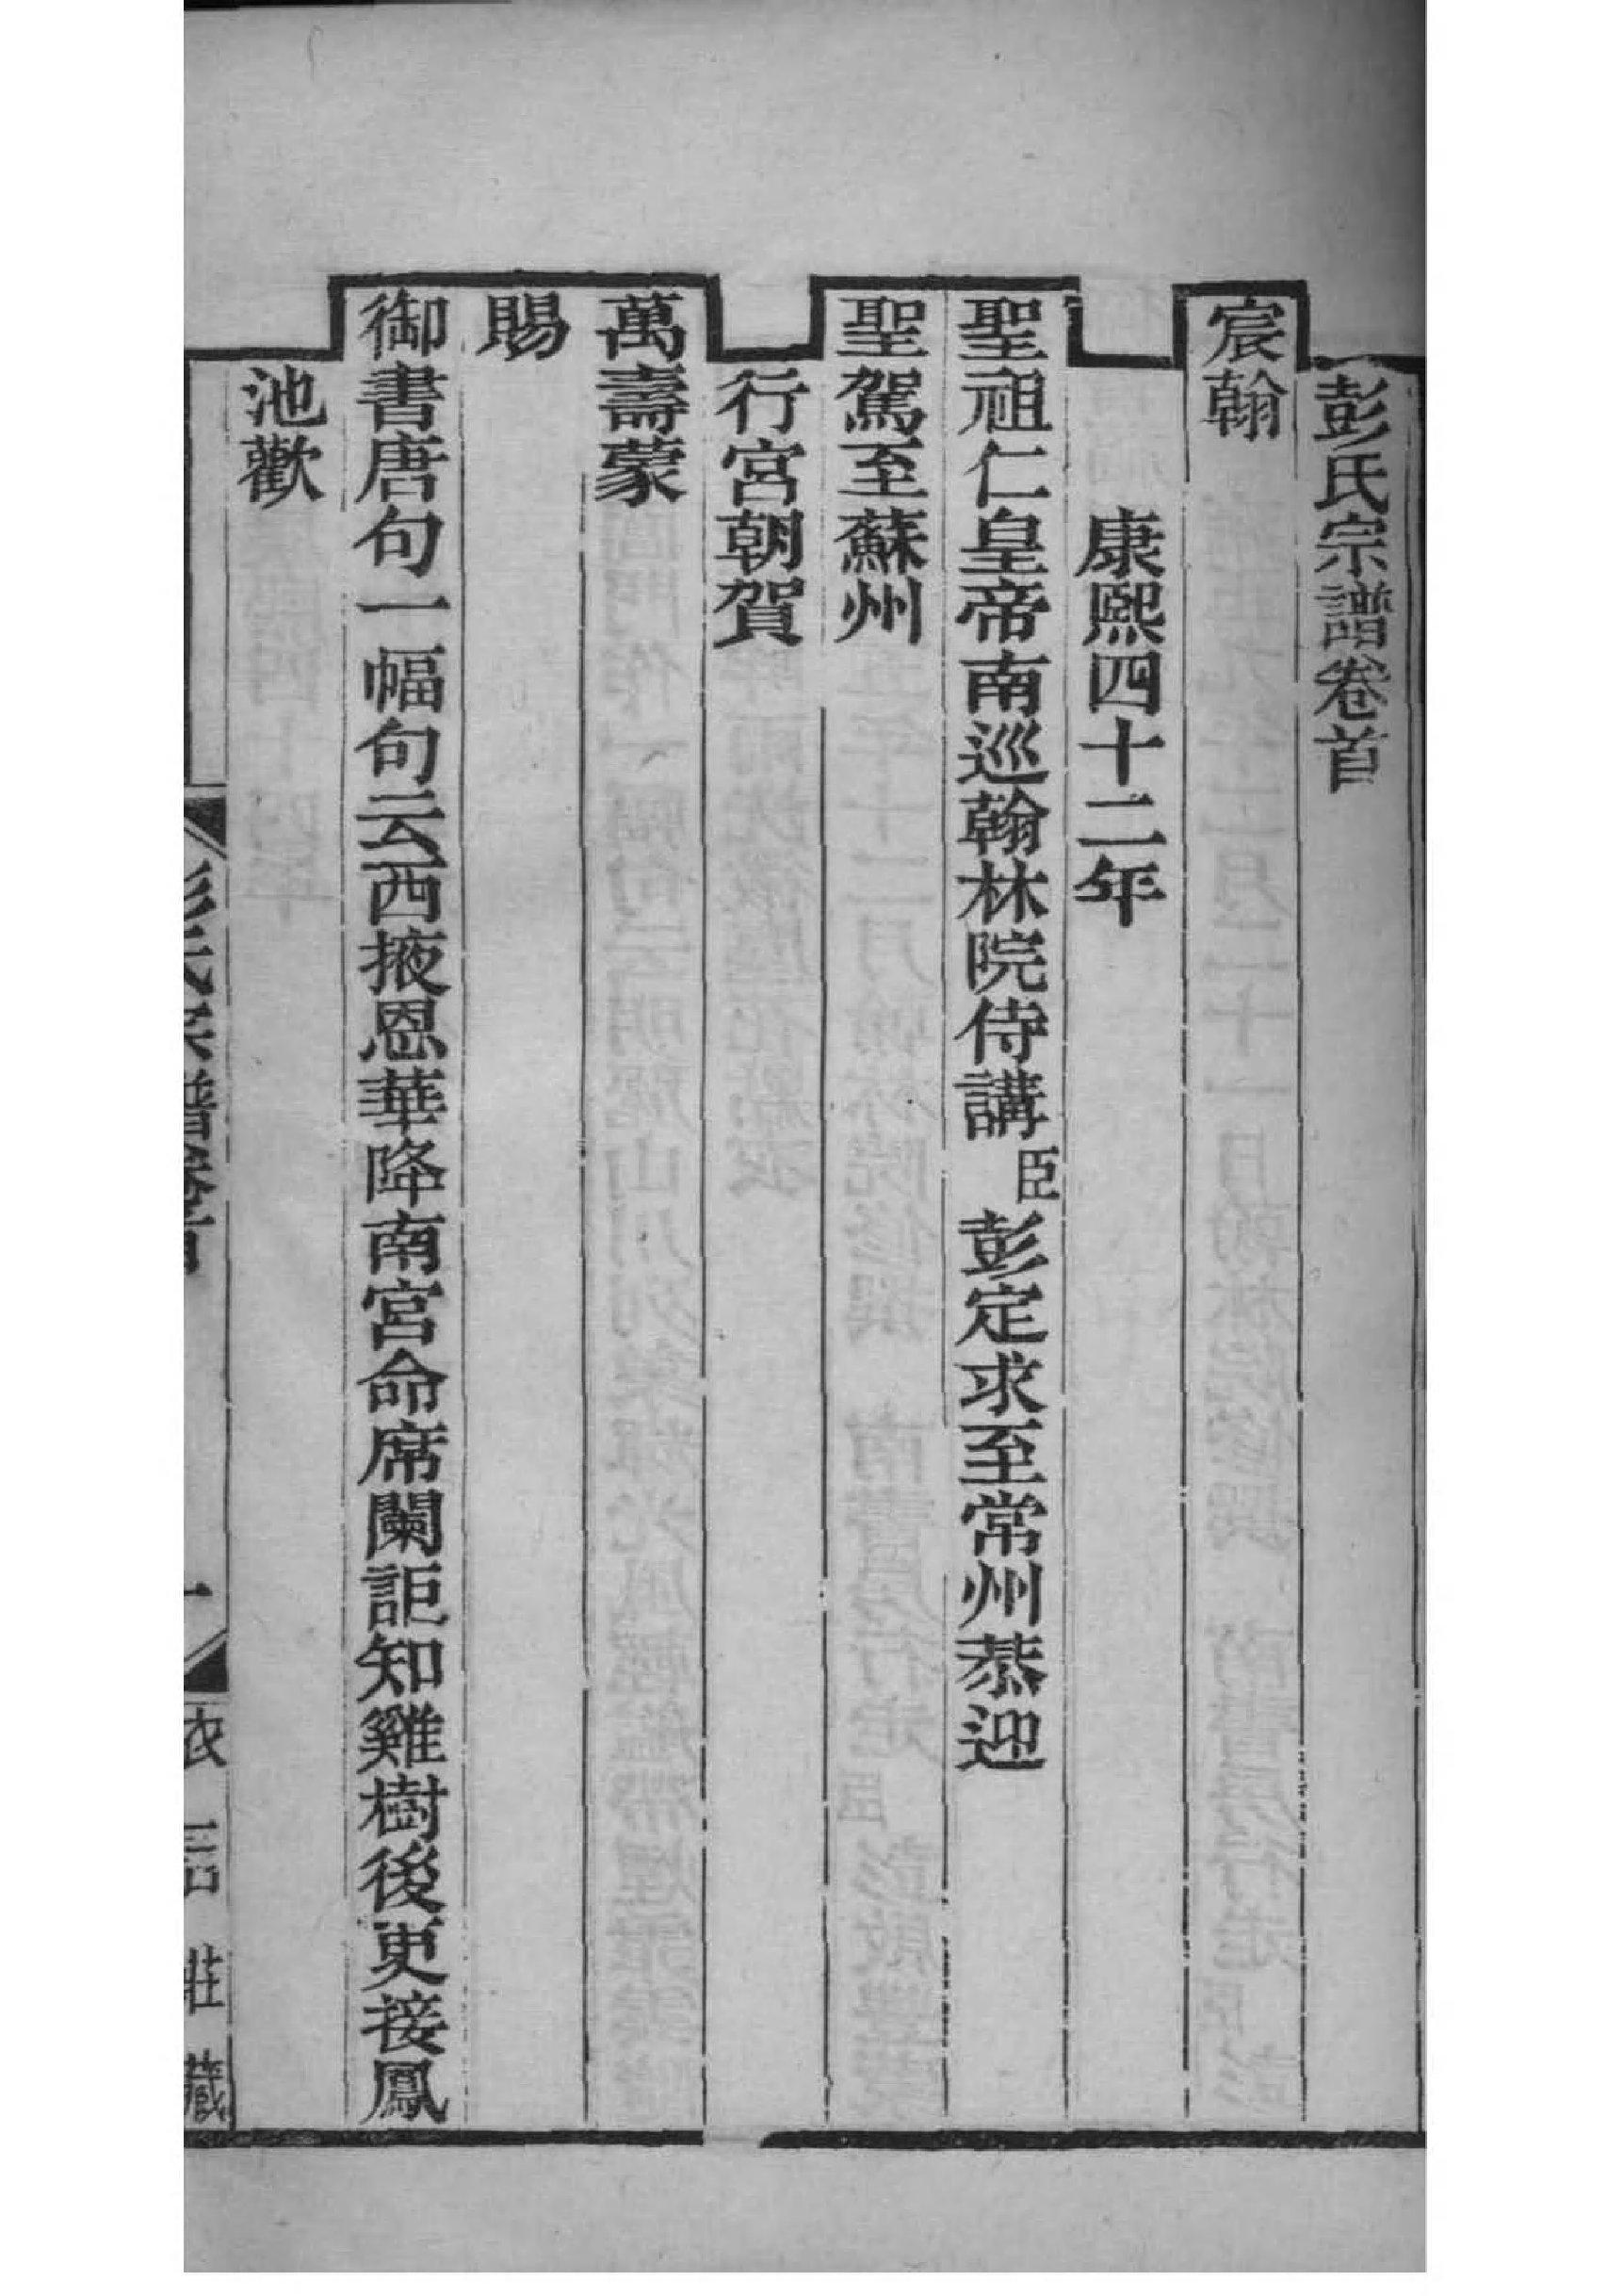 彭氏宗譜卷首
宸翰
康熙四十二年
聖祖仁皇帝南巡翰林院侍講臣彭定求至常州恭迎
聖駕至蘇州
行宮朝賀
萬壽蒙
賜
御書唐句一幅句云西掖恩華降南宮命席闌詎知雞樹後更接鳳
池歡
彭氏宗譜卷首
一
衣言莊藏